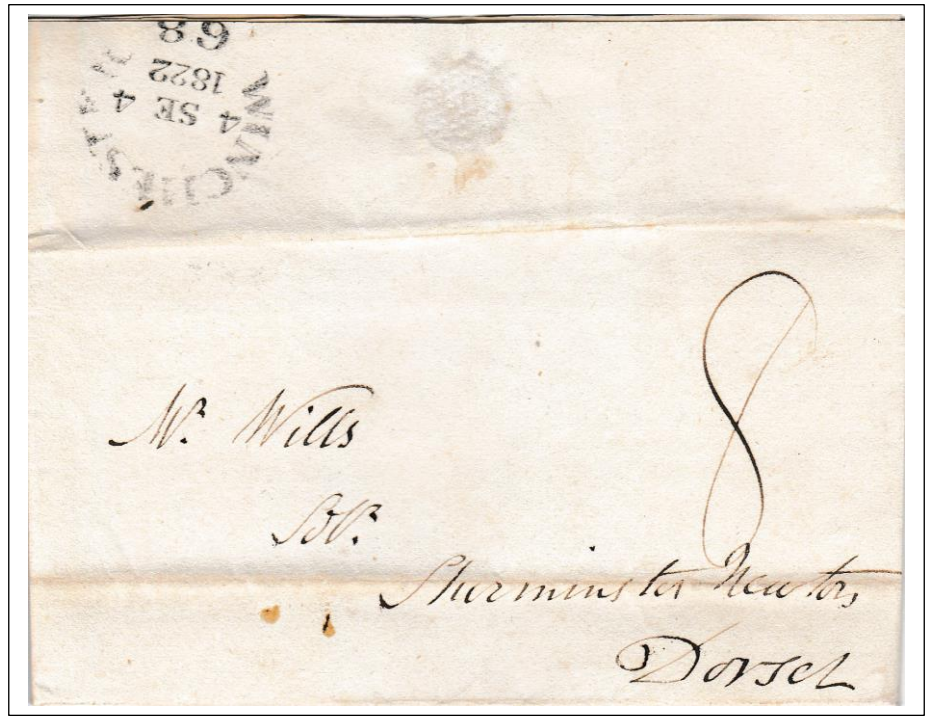 WINCHESTER
4 SE 4
1822
68
8
Mr. Wills
Solr.
Sturminster Newton
Dorset